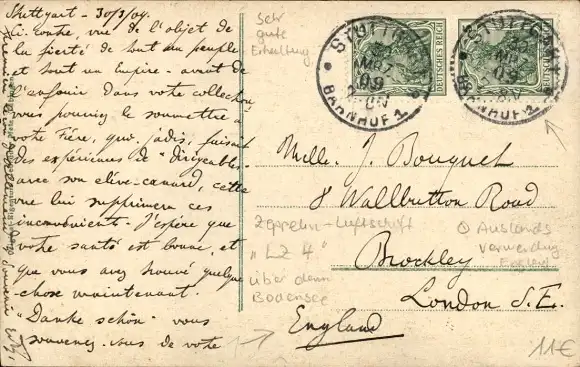 Stuttgart - 30/3/09.
Ci-contre, vue de l'objet de
la fierté de tout un peuple
et tout un Empire - avant de
l'enfouir dans votre collection
vous pourriez le soumettre à
votre Frère, que, jadis, faisait
des expériences de "dirigeables"
avec son élève-canard, cette
vue lui supprimera ces
inconvénient. J'espère que
votre santé est bonne, et
que vous avez trouvé quelque
chose maintenant.
"Danke schön" vous
souvenez-vous de votre
Sehr
gute
Erhaltung
STUTTGART
MRZ
09
BAHNHOF 1
DEUTSCHES REICH
STUTTGART
MRZ
09
BAHNHOF 1
Mlle. J. Bouquet
8 Wallbutton Road
Brockley
London S.E.
England
Zeppelin-Luftschiff
"LZ 4"
über dem
Bodensee
Auslands
Verwendung
England
11€